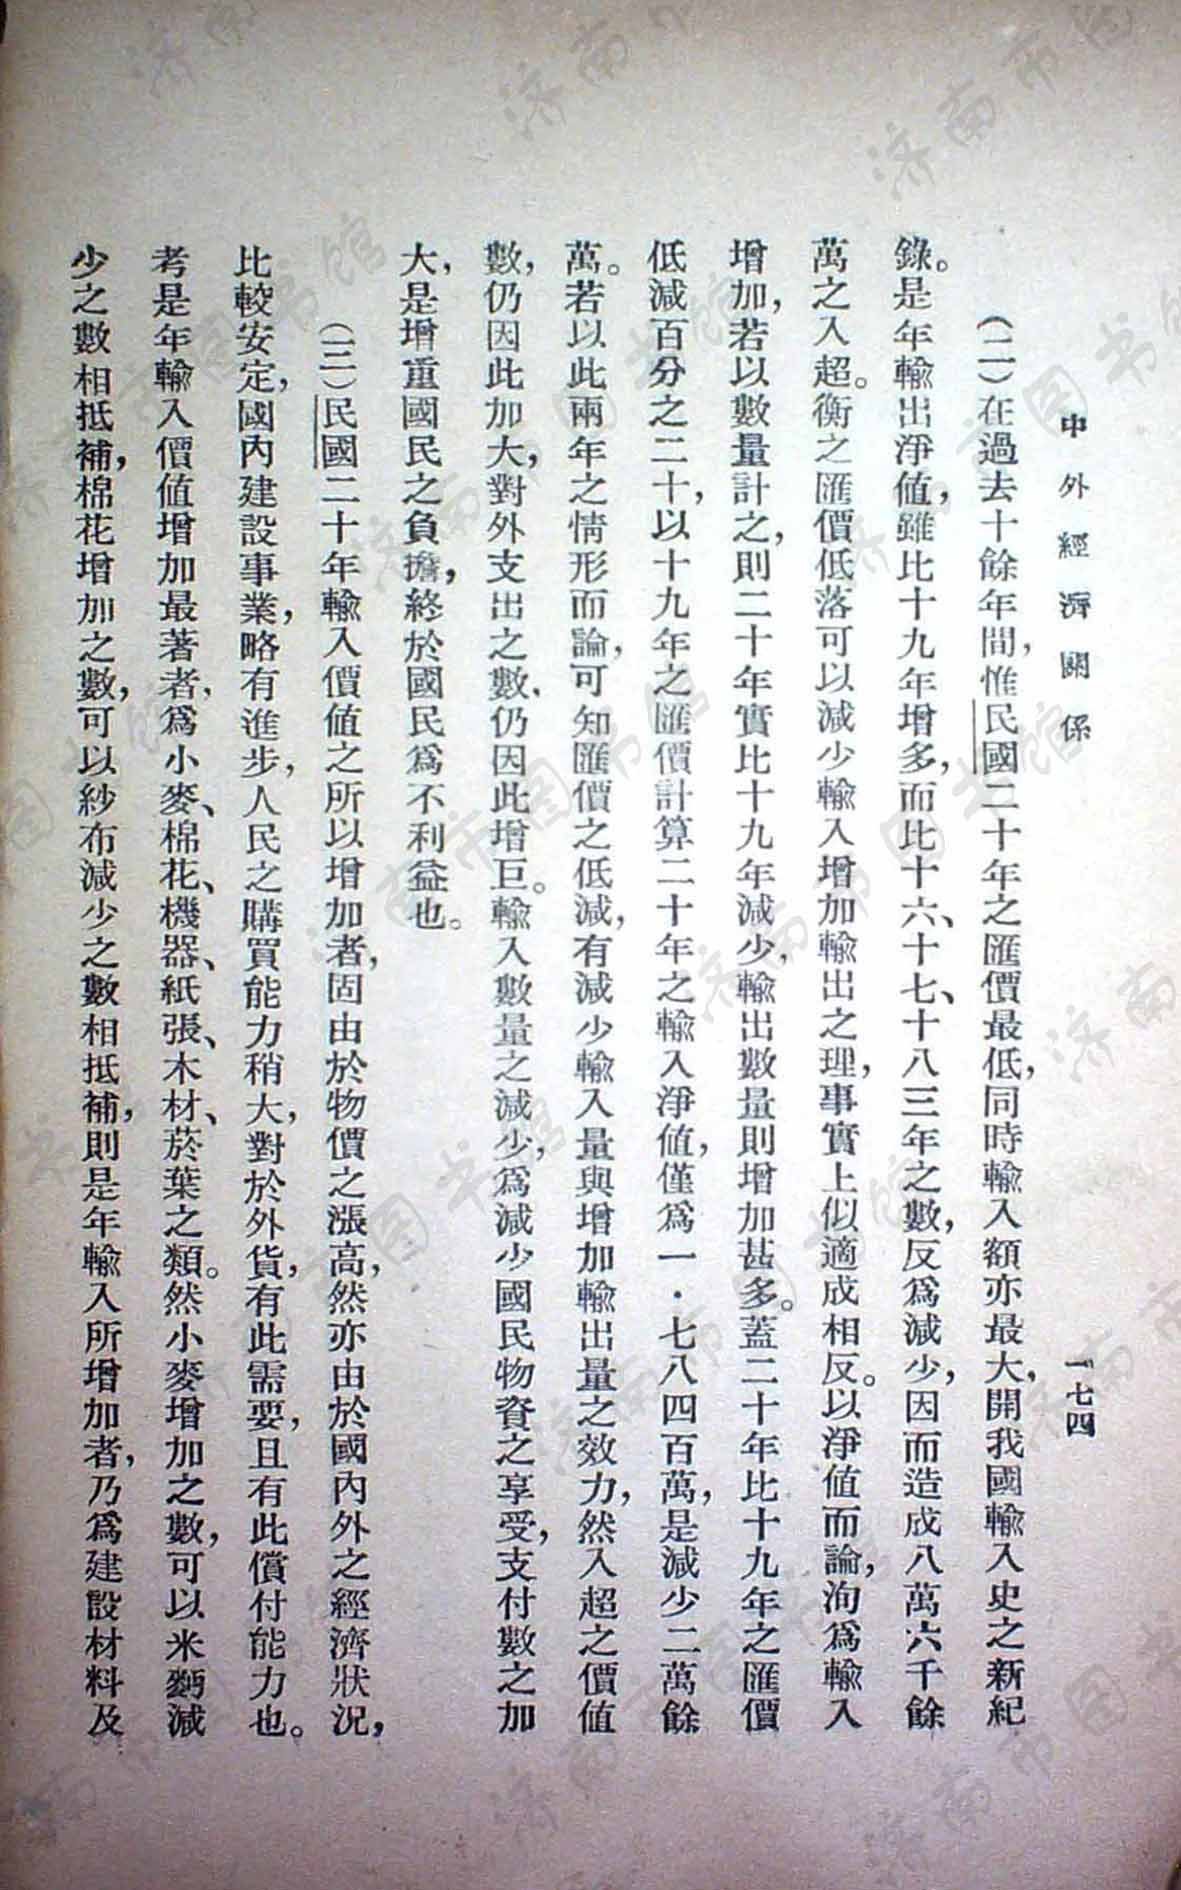 中外經濟關係
一七四
（二）在過去十餘年間，惟民國二十年之匯價最低，同時輸入額亦最大，開我國輸入史之新紀
錄。是年輸出淨值，雖比十九年增多，而比十六、十七、十八三年之數，反爲減少，因而造成八萬六千餘
萬之入超。衡之匯價低落可以減少輸入增加輸出之理，事實上似適成相反。以淨值而論，洵爲輸入
增加，若以數量計之，則二十年實比十九年減少，輸出數量則增加甚多。蓋二十年比十九年之匯價
低減百分之二十，以十九年之匯價計算二十年之輸入淨值，僅爲一・七八四百萬，是減少二萬餘
萬。若以此兩年之情形而論，可知匯價之低減，有減少輸入量與增加輸出量之效力，然入超之價值
數，仍因此加大，對外支出之數，仍因此增巨。輸入數量之減少，爲減少國民物資之享受，支付數之加
大，是增重國民之負擔，終於國民爲不利益也。
（三）民國二十年輸入價值之所以增加者，固由於物價之漲高，然亦由於國內外之經濟狀況，
比較安定，國內建設事業，略有進步，人民之購買能力稍大，對於外貨，有此需要，且有此償付能力也。
考是年輸入價值增加最著者，爲小麥、棉花、機器、紙張、木材、菸葉之類。然小麥增加之數，可以米麪減
少之數相抵補，棉花增加之數，可以紗布減少之數相抵補，則是年輸入所增加者，乃爲建設材料及
济南市图书馆